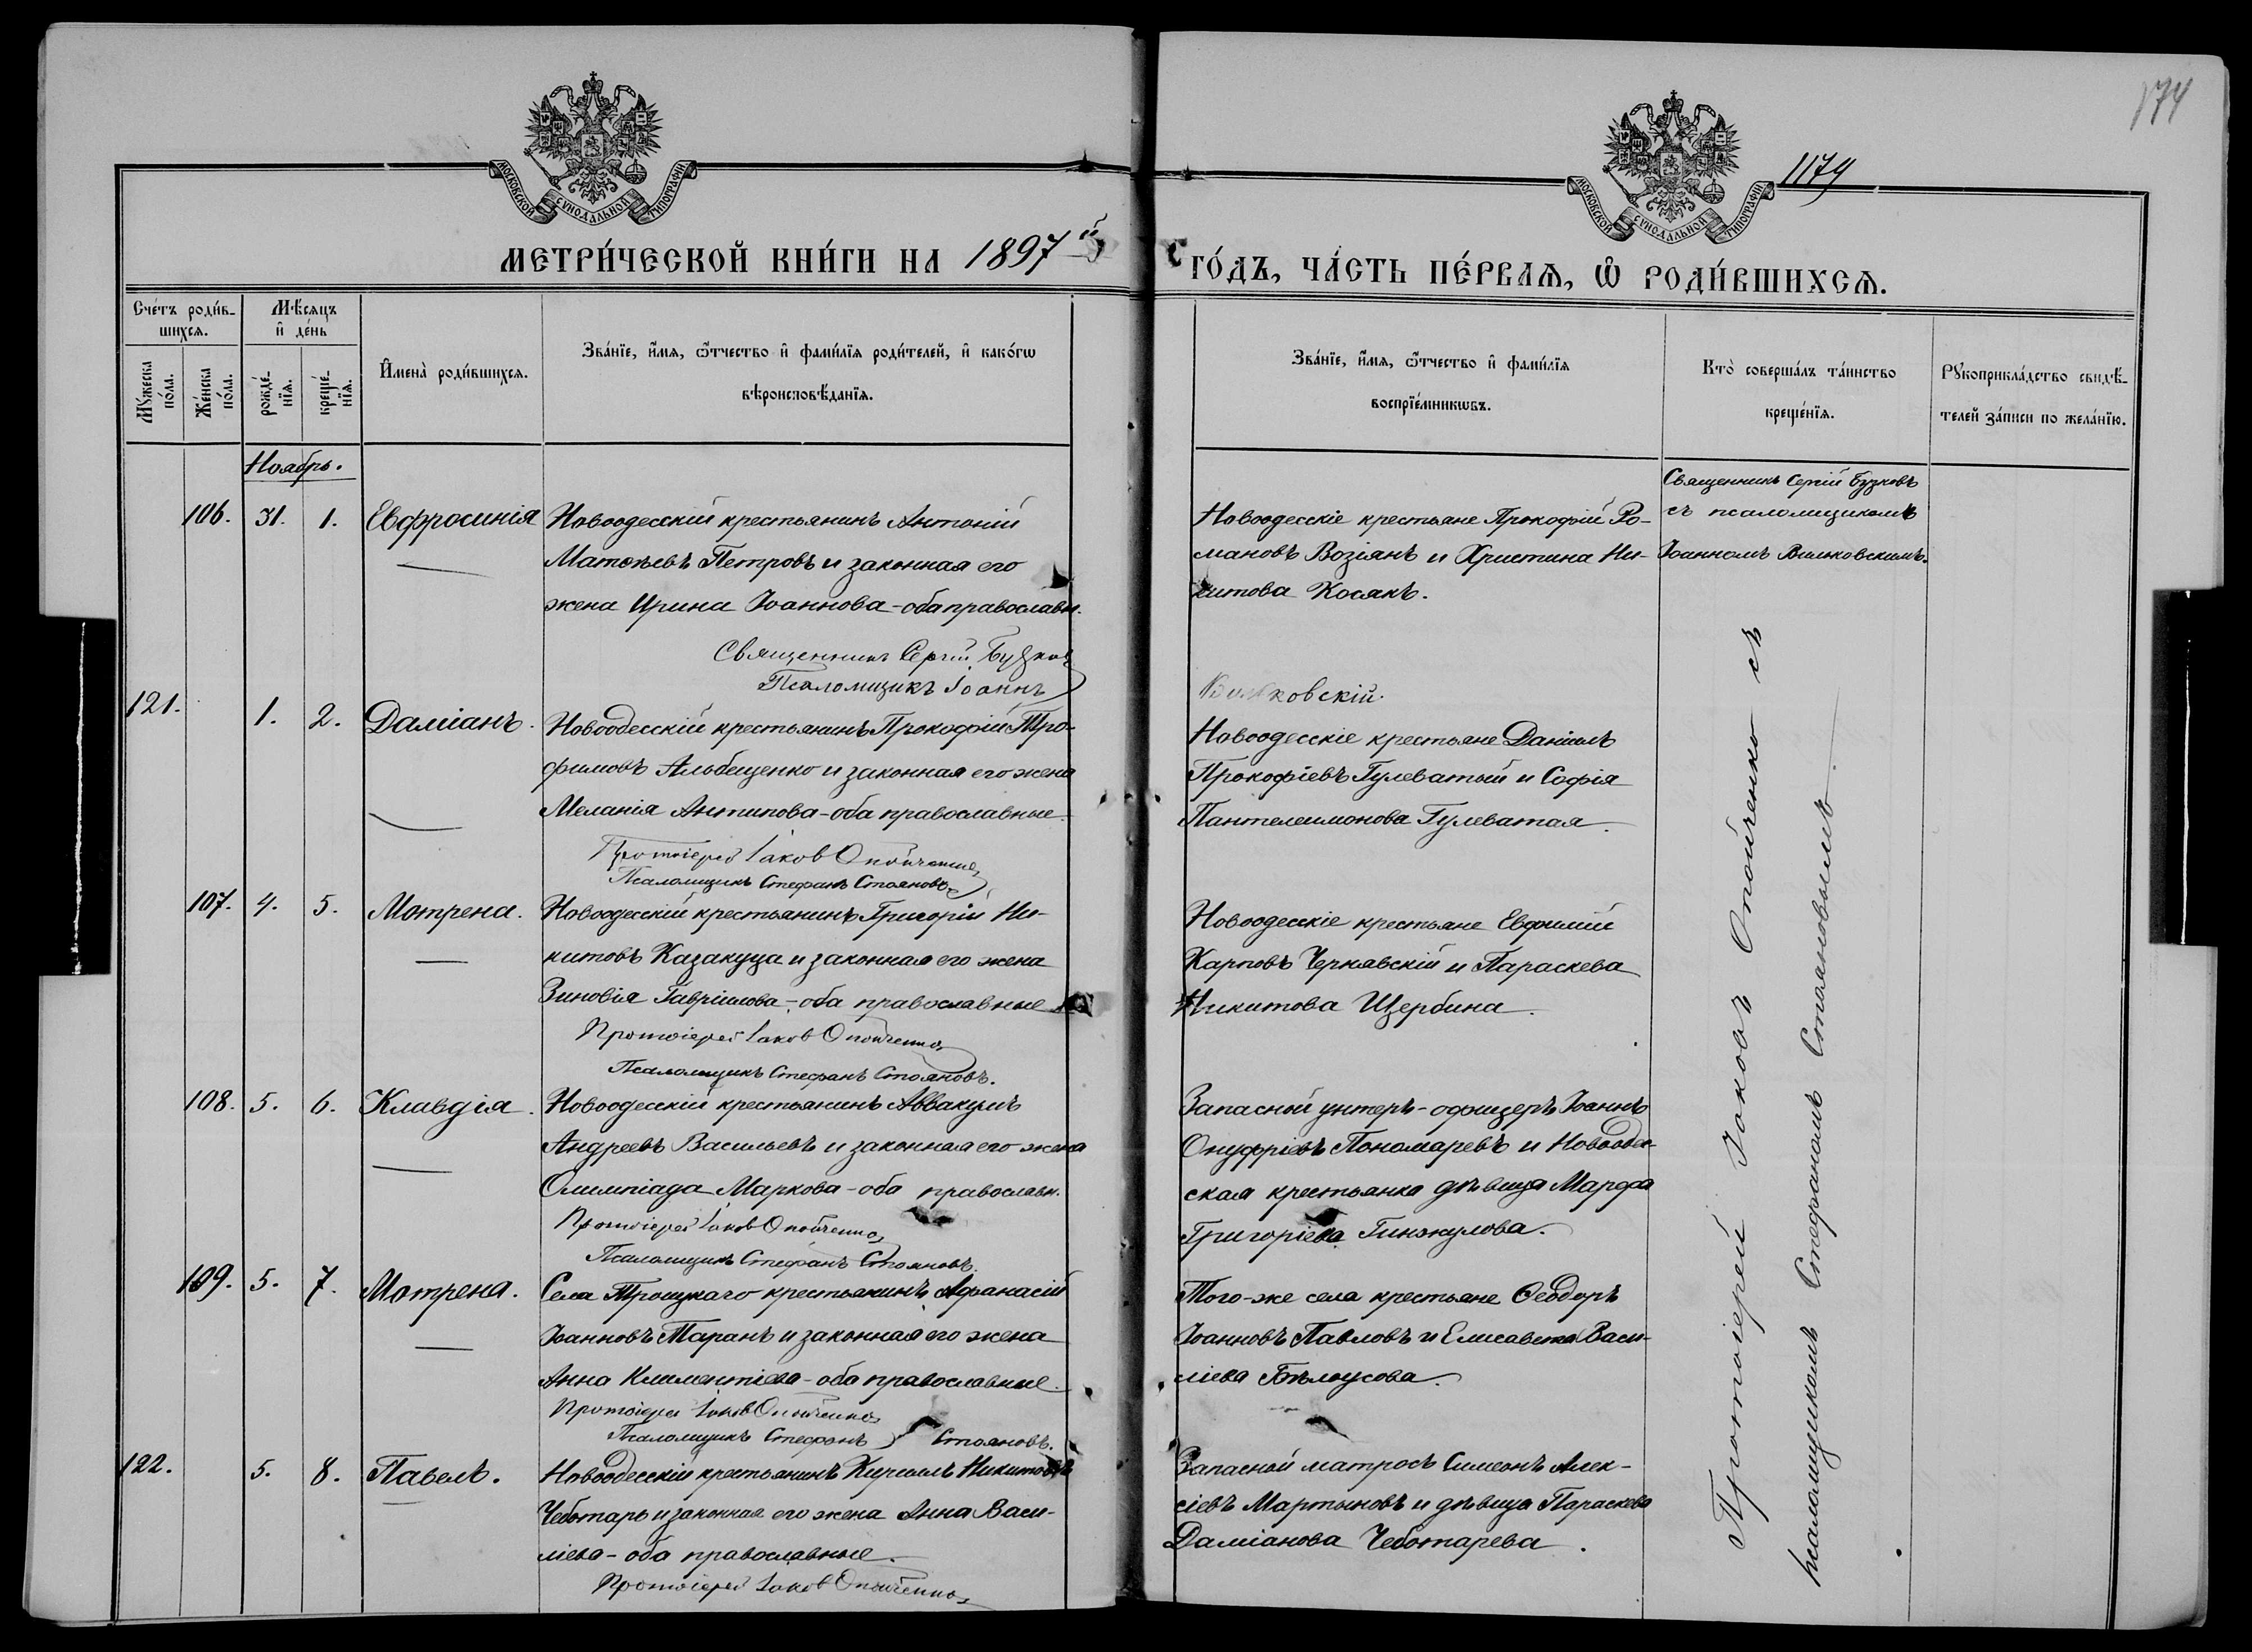 174
1179
МОСКОВСКОЙ СѴНОДАЛЬНОЙ ТИПОГРАФІИ
МОСКОВСКОЙ СѴНОДАЛЬНОЙ ТИПОГРАФІИ
МЕТРИ́ЧЕСКОЙ КНИ́ГИ НА 1897й
ГО́ДЪ, ЧА́СТЬ ПЕ́РВАѦ, Ѡ҆ РОДИ́ВШИХСѦ.
Сче́тъ роди́в-
шихсѧ.
Мꙋ́жеска по́ла.
Же́нска по́ла.
Мѣ́сѧцъ
и҆ де́нь
рожде́-
нїѧ.
креще́-
нїѧ.
И҆мена̀ роди́вшихсѧ.
Зва́нїе, и҆́мѧ, ѻ҆́тчество и҆ фами́лїѧ роди́телей, и҆ како́гѡ
вѣроисповѣ́данїѧ.
Зва́нїе, и҆́мѧ, ѻ҆́тчество и҆ фами́лїѧ
воспрїе́мникѡвъ.
Кто̀ соверша́лъ та́инство
креще́нїѧ.
Рꙋкоприкла́дство свидѣ́-
телей за́писи по жела́нїю.
Ноябрь.
106. 31. 1. Евфросинія
Новоодесскій крестьянинъ Антоній
Матѳѣевъ Петровъ и законная его
жена Ирина Іоаннова - оба православн.
Священникъ Сергій Бузковъ
Псаломщикъ Іоаннъ
Вильковскій.
Новоодесскіе крестьяне Прокофій Ро-
мановъ Возіянъ и Христина Ни-
китова Косякъ.
Священникъ Сергій Бузковъ
съ псаломщикомъ
Іоанномъ Вильковскимъ.
121. 1. 2. Даміанъ.
Новоодесскій крестьянинъ Прокофій Тро-
фимовъ Альбещенко и законная его жена
Меланія Антипова - оба православные.
Протоіерей Іаковъ Опойченко
Псаломщикъ Стефанъ Стояновъ
Новоодесскіе крестьяне Даніилъ
Прокофіевъ Гулеватый и Софія
Пантелеимонова Гулеватая.
107. 4. 5. Мотрена.
Новоодесскій крестьянинъ Григорій Ни-
китовъ Казакуца и законная его жена
Зиновія Гавріилова - оба православные
Протоіерей Іаковъ Опойченко
Псаломщикъ Стефанъ Стояновъ.
Новоодесскіе крестьяне Евфимій
Карповъ Чернявскій и Параскева
Никитова Щербина.
108. 5. 6. Клавдія.
Новоодесскій крестьянинъ Аввакумъ
Андреевъ Васильевъ и законная его жена
Олимпіада Маркова - оба православн.
Протоіерей Іаковъ Опойченко
Псаломщикъ Стефанъ Стояновъ.
Запасной унтеръ-офицеръ Іоаннъ
Онуфріевъ Пономаревъ и Новоодес-
ская крестьянка дѣвица Марфа
Григоріева Гинжулова.
109. 5. 7. Мотрена.
Села Троицкаго крестьянинъ Афанасій
Іоанновъ Таранъ и законная его жена
Анна Климентіева - оба православные.
Протоіерей Іаковъ Опойченко
Псаломщикъ Стефанъ Стояновъ.
Того-же села крестьяне Ѳеодоръ
Іоанновъ Павловъ и Елисавета Васи-
ліева Бѣлоусова.
122. 5. 8. Павелъ.
Новоодесскій крестьянинъ Кириллъ Никитовъ
Чеботарь и законная его жена Анна Васи-
ліева - оба православные.
Протоіерей Іаковъ Опойченко
Запасной матросъ Симеонъ Алек-
сіевъ Мартыновъ и дѣвица Параскева
Даміанова Чеботарева.
Протоіерей Іаковъ Опойченко съ
псаломщикомъ Стефаномъ Стояновымъ.